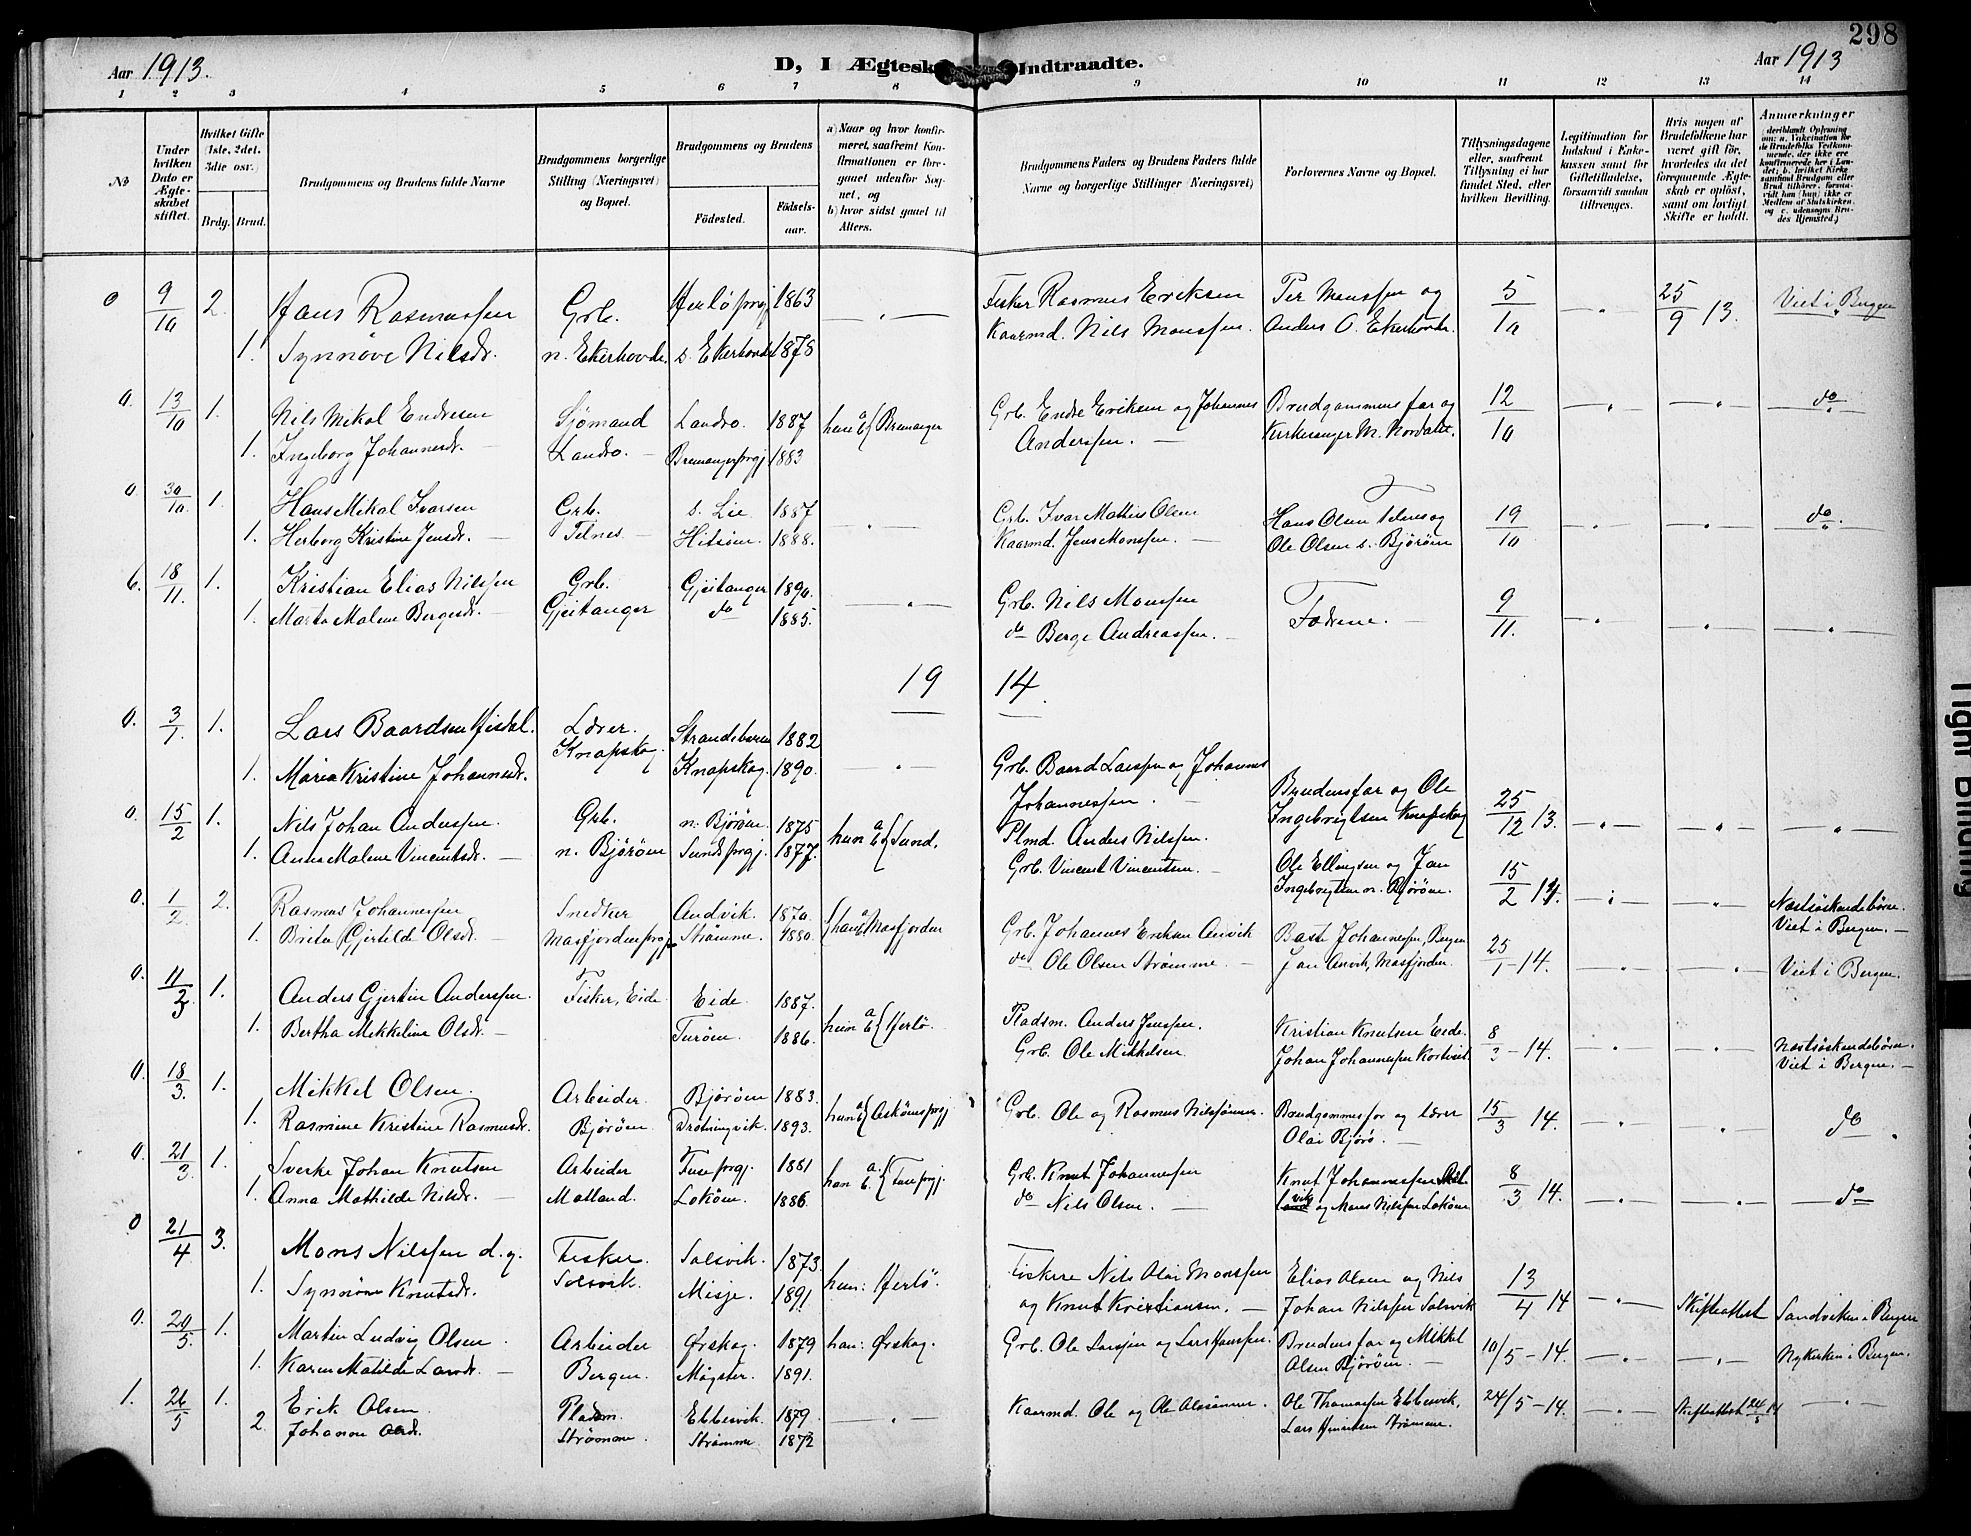 298
Aar 1913.
D, I Ægtesk Indtraadte.
Aar 1913
1 2 3 4 5 6 7 8 9 10 11 12 13 14
No
Under hvilken Dato er Ægteskabet stiftet.
Hvilket Gifte (1ste, 2det, 3die osv.)
Brdg. Brud.
Brudgommens og Brudens fulde Navne
Brudgommens borgerlige Stilling (Næringsvei) og Bopæl.
Brudgommens og Brudens
Födested.
Födselsaar.
a) Naar og hvor konfirmeret, saafremt Konfirmationen er foregaaet udenfor Sognet, og
b) hvor sidst gaaet til Alters.
Brudgommens Faders og Brudens Faders fulde Navne og borgerlige Stillinger (Næringsvei)
Forlovernes Navne og Bopæl.
Tillysningsdagene eller, saafremt Tillysning ei har fundet Sted, efter hvilken Bevilling.
Legitimation for Indskud i Enkekassen samt for Giftetilladelse, forsaavidt saadan tiltrænges.
Hvis nogen af Brudefolkene har været gift för, hvorledes da det foregaaende Ægteskab er oplöst, samt om lovligt Skifte er holdt.
Anmærkninger
(deriblandt Oplysning om: a. Vakcination for de Brudefolks Vedkommende, der ikke ere konfirmerede her i Landet; b. hvilket Kirkesamfund Brudgom eller Brud tilhörer, forsaavidt han (hun) ikke er Medlem af Statskirken, og c. udensogns Brudes Hjemsted.)
0 9/10 2. Hans Rasmussen Grb. Herlö prgj 1863 — " — Fisker Rasmus Eriksen Per Monssen og 5/10 — " — 25/9 13. Viet i Bergen
1. Synnöve Nilsdr. n. Ekerhovde. s. Ekerhovde 1875 Kaarmd. Nils Monssen. Anders O. Ekerhovde.
0. 13/10 1. Nils Mikal Endresen Sjömand Landro. 1887 Grb. Endre Eriksen og Johannes Brudgommens far og 12/10 — " — — " — do
1. Ingeborg Johannesdr. Landro. Bremanger prgj. 1883 Anderssen. Kirkesanger M. Nordahl.
0. 30/10 1. Hans Mikal Ivarsen Grb. s. Lie 1887 — " — Grb. Ivar Mathis Olsen Hans Olsen Telnes og 19/10 — " — — " — do.
1. Herborg Kristine Jensdr. Telnes Hitsöen. 1888. Kaarmd. Jens Monssen. Ole Olsen s. Björöen
6. 18/11. 1. Kristian Elias Nilssen Grb. Gjeitanger 1890. — " — Grb. Nils Monssen Fædrene. 9/11. — " — — " — — " —
1. Marta Malene Bergesdr. Gjeitanger do 1885. do Berge Andreassen.
19 14.
0. 3/1 1. Lars Baardsen Hisdal. Lærer. Strandebarm 1882 — " — Grb. Baard Larssen og Johannes Brudens far og Ole 25/12 13. — " — — " — — " —
1. Maria Kristine Johannesdr. Knapskog. Knapskog. 1890. Johannessen. Ingebrigtsen Knapskog
0. 15/2 1. Nils Johan Anderssen. Grb. n. Björöen. 1875 Plmd. Anders Nilssen. Ole Ellingsen og Jan 15/2 14.
1. Anna Malene Vincentsdr. n. Björöen Sunds prgj. 1877. Grb. Vincent Vincentsen. Ingebrigtsen n. Björöen. Næstsöskendebörn. Viet i Bergen.
0. 1/2 2. Rasmus Johannessen Snedker Andvik. 1870. Grb. Johannes Eriksen Anvik Johannessen, Bergen 25/1 - 14. — " — — " — Viet i Bergen.
1. Brita Gjertilde Olsdr. Masfjorden prgj Strömme. 1880. do Ole Olsen Strömme. Jan Anvik, Masfjorden.
0. 11/3 1. Anders Gjertin Anderssen. Fisker, Eide Eide. 1887. Pladsm. Anders Jenssen. Kristian Knutsen Eide. 8/3 - 14. — " — — " — Næstsöskendebörn.
1. Bertha Mikkeline Olsdr. Turöen. 1886. Grb. Ole Mikkelsen. Johan Johannessen Viet i Bergen.
0. 18/3. 1. Mikkel Olsen. Arbeider. Björöen 1883. Grb. Ole og Rasmus Nilssönner. Brudgommens far og lærer 15/3 14. — " — — " — do
1. Rasmine Kristine Rasmusdr. Björöen. Drotningvik. 1893. Olai Björö.
0. 21/3. 1. Sverke Johan Knutsen Arbeider Fuse prgj. 1881 Grb. Knut Johannessen Knut Johannessen 8/3 14. — " — — " — do
1. Anna Mathilde Nilsdr. Matland. Loköen. 1886. do Nils Olsen. og Mons Nilssen Loköen
0 21/4 3. Mons Nilssen d. y. Fisker Solsvik. 1873. Fiskere Nils Olai Monssen Elias Olsen og Nils 13/4 14 — " — Skifteattest Sandviken i Bergen
1. Synnöve Knutsdr. Solsvik. Misje. 1891 hun: Herlö. og Knut Kristiansen. Johan Nilssen Solsvik
0. 20/5. 1. Martin Ludvig Olsen Arbeider Örskog. 1879 han: Örskog. Grb. Ole Larssen og Lars Hanssen. Brudens far og Mikkel 10/5 - 14. — " — — " — Nykirken i Bergen.
1. Karen Matilde Larsdr. Bergen. Mögster. 1891. Olsen Björöen.
1. 26/5 1. Erik Olsen. Pladsm. Ebbesvik. 1879. — " — Kaarmd. Ole og Ole Olssönner. Ole Thomassen Ebbesvik, 24/5 - 14. — " — Skifteattest 24/5 14 — " —
2. Johanne Olsdr. Strömme. Strömme 1872 Lars Henriksen Strömme.
Tight Binding